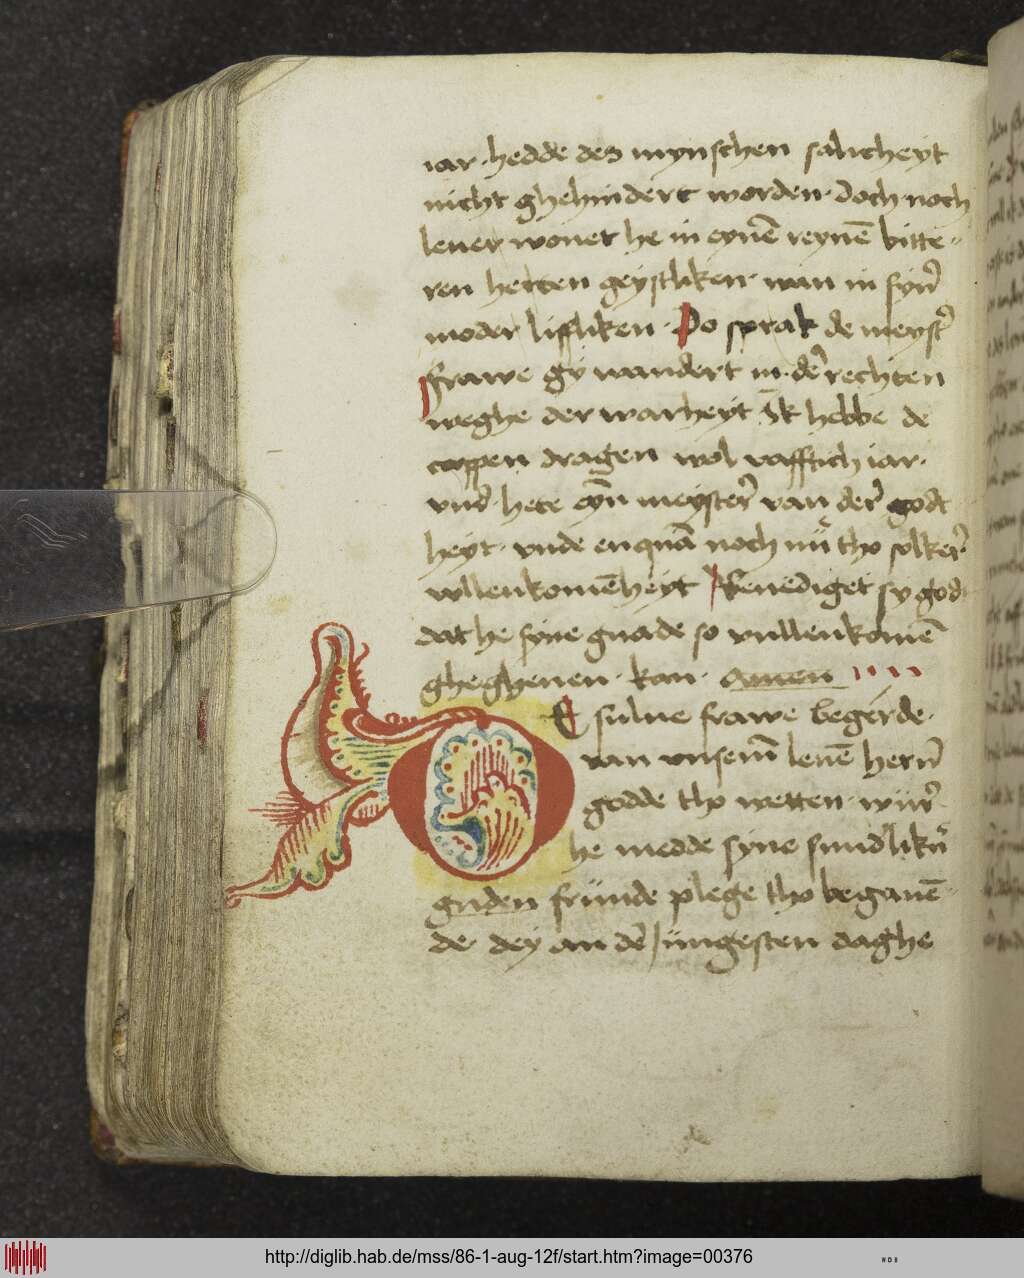 iar · hedde des mynschen salicheyt
nicht ghehindert worden · doch noch
leuer wonet he in eynē reynē bitte⸗
ren herten geystliken · wan in syn̄
moder liffliken · Do sprak de meyst̄
frawe gy wandert in · der̄ rechten
weghe der warheyt Ik hebbe de
cappen dragen wol vafftich iar ·
vnd̄ hete eyn̄ meyster̄ van der̄ godt
heyt · vnde enquā noch nü tho solker̄
vullenkomēheyt Benediget sy god
dat he syne gnade so vullenkomē
ghe ghenen · kan · amen
E sulue frawe begerde ·
van vnsem̄ leuē hern̄
godde tho wetten · wür̄
he medde syne sundlikn̄
guden fründe plege tho begauē
de · dey an dē Jüngesten daghe
http://diglib.hab.de/mss/86-1-aug-12f/start.htm?image=00376